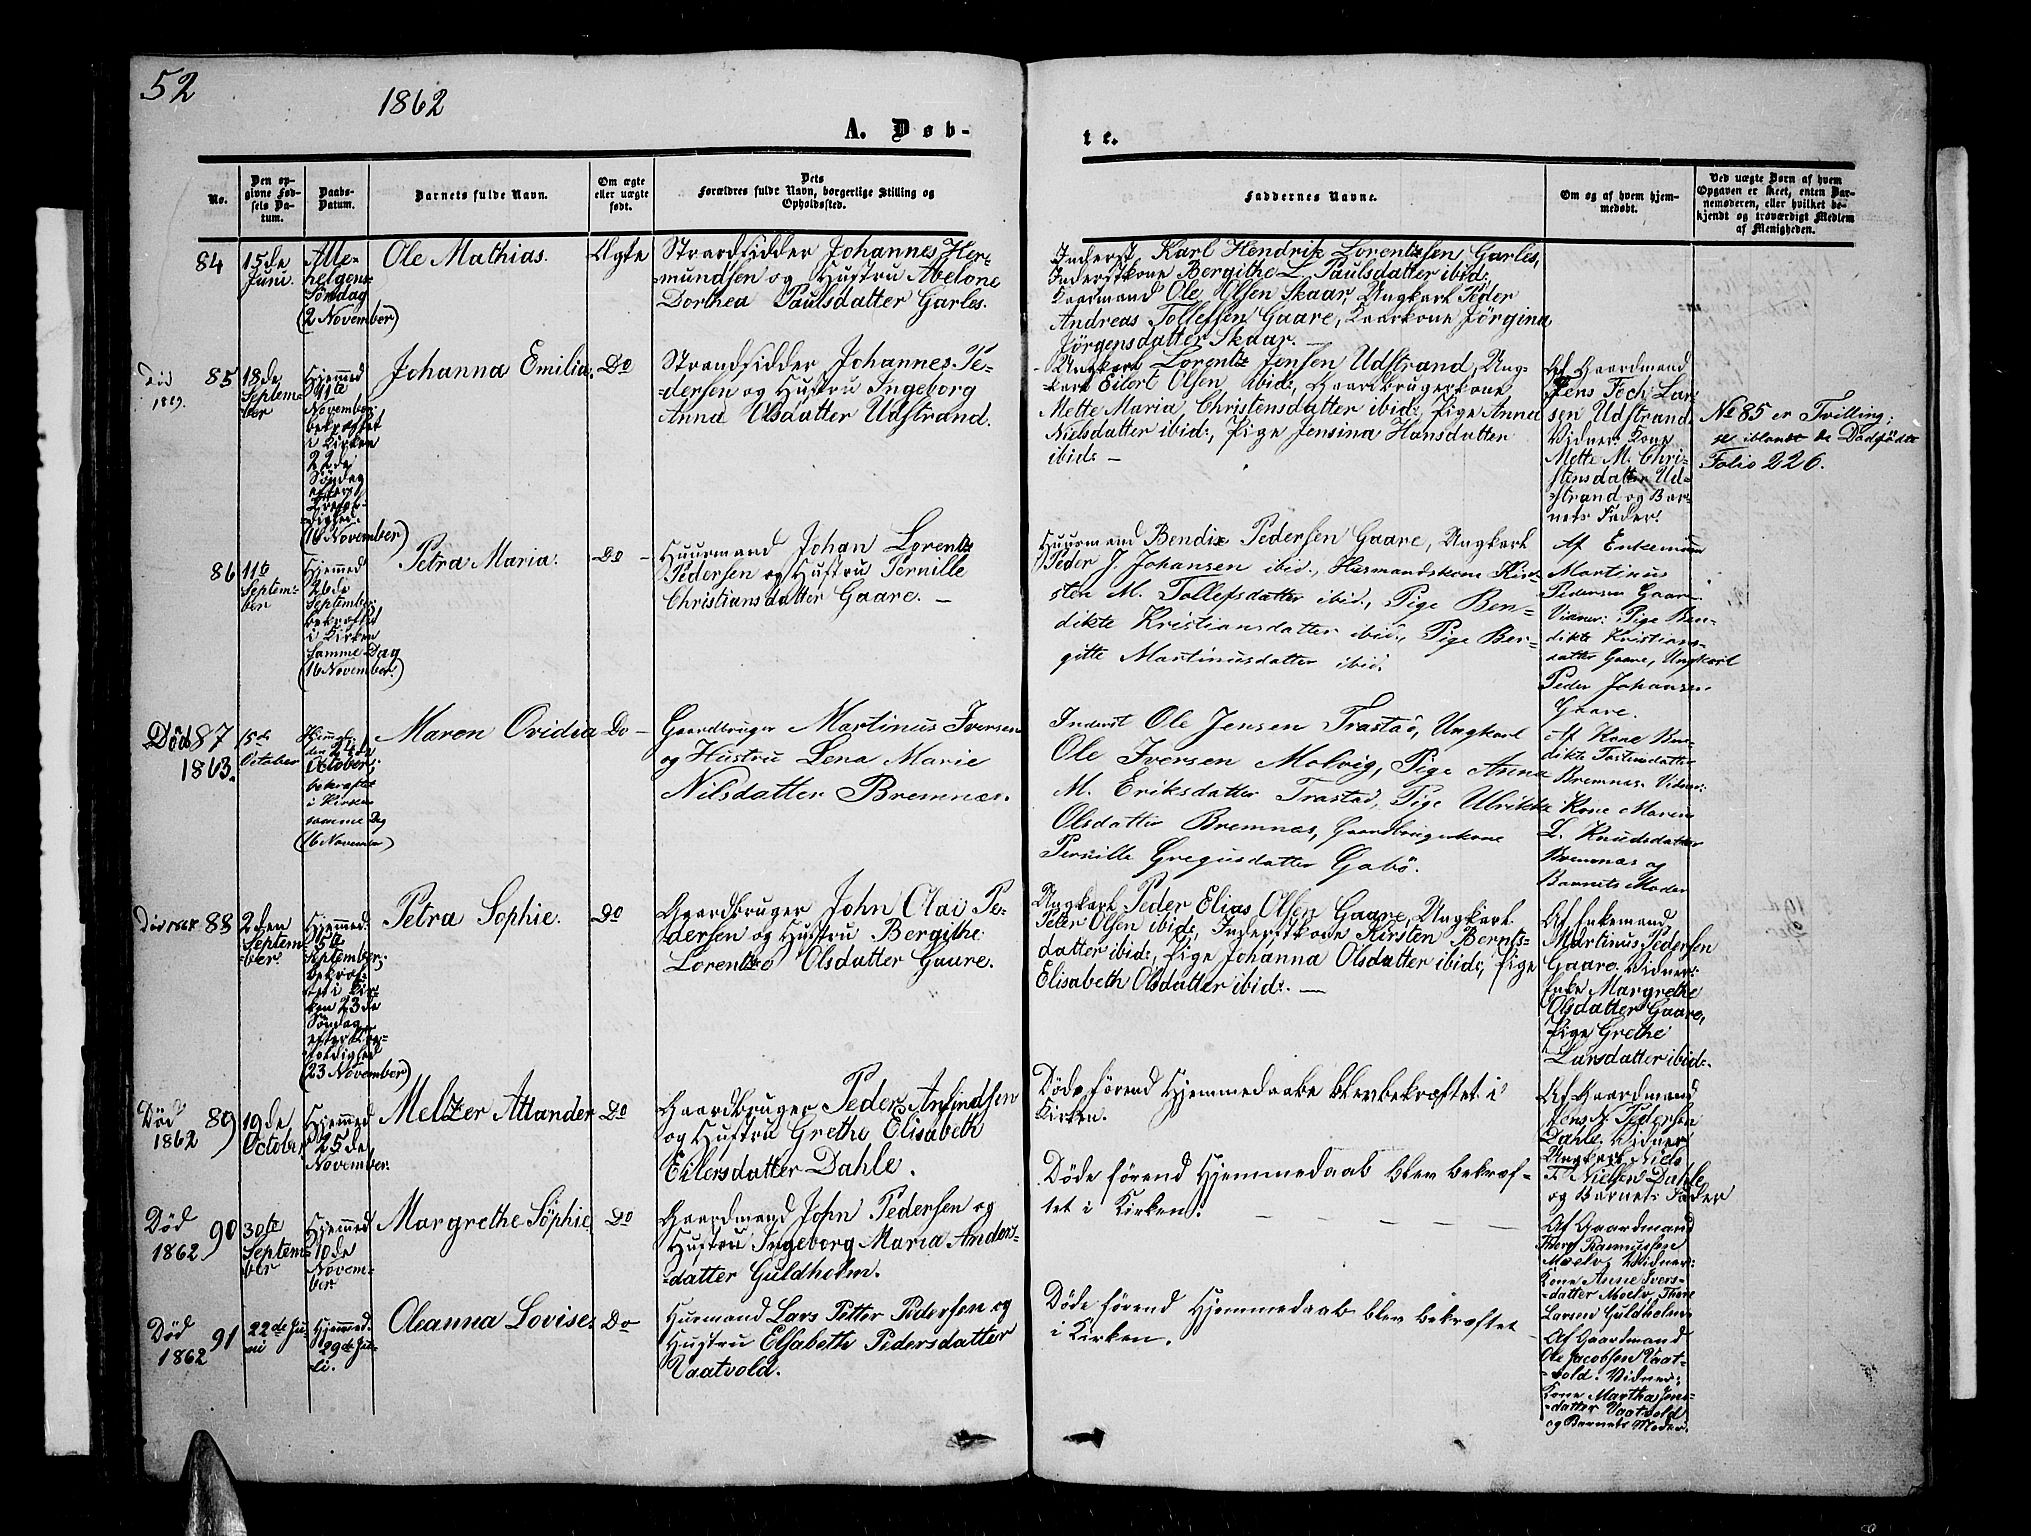 52
1862
A. Døb-
te.
No.
Den op-
givne Fød-
sels Da-
tum.
Daabs-
Datum.
Barnets fulde Navn.
Om ægte
eller uægte
født.
Dets
Forældres fulde Navn, borgerlige Stilling og
Opholdssted.
Faddernes Navne.
Om og af hvem hjem-
medøbt.
Ved uægte Børn af hvem
Opgaven er skeet, enten Bar-
nemoderen, eller hvilket be-
kjendt og troværdigt Medlem
af Menigheden.
84
15de
Juni.
Alle-
helgens
Søndag
(2 November)
Ole Mathias.
Ægte
Strandsidder Johannes Her-
mundsen og Hustru Abelone
Dorthea Paulsdatter Garles.
Inderst Karl Hendrik Lorentzsen, Garles,
Inderstkone Bergithe L. Paulsdatter ibid:,
Gaardmand Ole Olsen Skaar, Ungkarl Peder
Andreas Tollefsen Gaare, Gaardkone Jørgina
Jørgensdatter Skaar. —
Død
1869.
85
18de
Septem-
ber
Hjemmed
11te
November;
bekræftet
i Kirken
22de
Søndag
efter
Trefol-
dighed.
(16 November)
Johanna Emilia.
Do
Strandsidder Johannes Pe-
dersen og Hustru Ingeborg
Anna Olsdatter Udstrand.
Ungkarl Lorentz Jensen Udstrand, Ung-
karl Eilert Olsen ibid:, Gaardbrugerkone
Mette Maria Christensdatter ibid:, Pige Anna
Nielsdatter ibid:, Pige Jensina Hansdatter
ibid: —
Af Gaardmand
Jens Foch Lar-
sen Udstrand.
Vidner: Kone
Mette M. Chri-
stensdatter Ud-
strand og Bar-
nets Fader.
No 85 er Tvilling;
se iblandt de Dødfødte
Folio 226.
86
11te
Septem-
ber
Hjemmed
26de
September;
bekræftet
i Kirken
samme Dag
(16 November.)
Petra Maria.
Do —
Huusmand Johan Lorentz
Pedersen og Hustru Pernille
Christiansdatter Gaare. —
Huusmand Bendix Pedersen Gaare, Ungkarl
Peder J. Johansen ibid., Husmandskone Kir-
sten M. Tollefsdatter ibid., Pige Ben-
dikte Kristiansdatter ibid., Pige Ber-
gitte Martinusdatter ibid.
Af Enkemann
Martinus
Pedersen Gaare.
Vidner: Pige Ben-
dikte Kristians-
datter Gaare, Ungkarl
Peder Johansen
Gaare.
Død
1863.
87
15de
October
Hjemme-
den 24de
October;
bekræftet
i Kirken
samme Dag
(16 November)
Maren Ovidia
Do —
Gaardbruger Martinus Iversen
og Hustru Lena Marie
Nilsdatter Bremnæs.
Inderst Ole Jensen Trastad, Ungkarl
Ole Iversen Molvig, Pige Anna
M. Eriksdatter Trastad, Pige Ulrikka
Olsdatter Bremnæs, Gaardbrugerkone
Pernille Gregusdatter Gabø.
Af Kone Ben-
dikte Tostensdatter
Bremnæs. Vidner:
Kone Maren
L. Knudsdatter
Bremnæs og
Barnets Moder
Død 1864
88
2den
Septem-
ber.
Hjemmed.
15de
September;
bekræf-
tet i Kir-
ken 23de
Søndag
efter Tre-
foldighed
(23 November)
Petra Sophie.
Do
Gaardbruger John Olai Pe-
dersen og Hustru Bergithe
Lorentze Olsdatter Gaare.
Ungkarl Peder Elias Olsen Gaare, Ungkarl
Peter Olsen ibid:, Inderstkone Kirsten Bernts-
datter ibid:, Pige Johanna Olsdatter ibid:, Pige
Elisabeth Olsdatter ibid:. —
Af Enkemand
Martinus Pedersen
Gaare. Vidner:
Enke Margrethe
Olsdatter Gaare,
Pige Grethe
Larsdatter ibid:.
Død
1862
89
19de
October
Hjemmed
25de
November.
Melzer Attander
Do
Gaardbruger Peder Arfindsen
og Hustru Grethe Elisabeth
Eilersdatter Dahle.
Døde førend Hjemmedaaben blev bekræftet i
Kirken.
Af Gaardmand
Jens N. Pedersen
Dahle. Vidner
Ungkarl Niels
F. Nielsen Dahle
og Barnets Fader
Død
1862
90
30te
Septem-
ber
Hjemmed
10de
Novem-
ber
Margrethe Sophie
Do
Gaardmand John Pedersen og
Hustru Ingeborg Maria Anders-
datter Guldholm.
Døde førend Hjemmedaab blev bekræf-
tet i Kirken.
Af Gaardmand
Thore Rasmussen
Moelv. Vidner:
Kone Anne Ivers-
datter Moelv, Thore
Larsen Guldholm
Død
1862
91
22de Ju-
ni
Hjemmed.
29de Ju-
li.
Oleanna Lovise.
Do
Husmand Lars Petter Pedersen og
Hustru Elsabeth Pedersdatter
Vaatvold.
Døde førend Hjemmedaab blev bekræftet
i Kirken.
Af Gaardmand
Ole Jacobsen Vaat-
vold. Vidner:
Kone Martha Jens-
datter Vaatvold
og Barnets Moder.